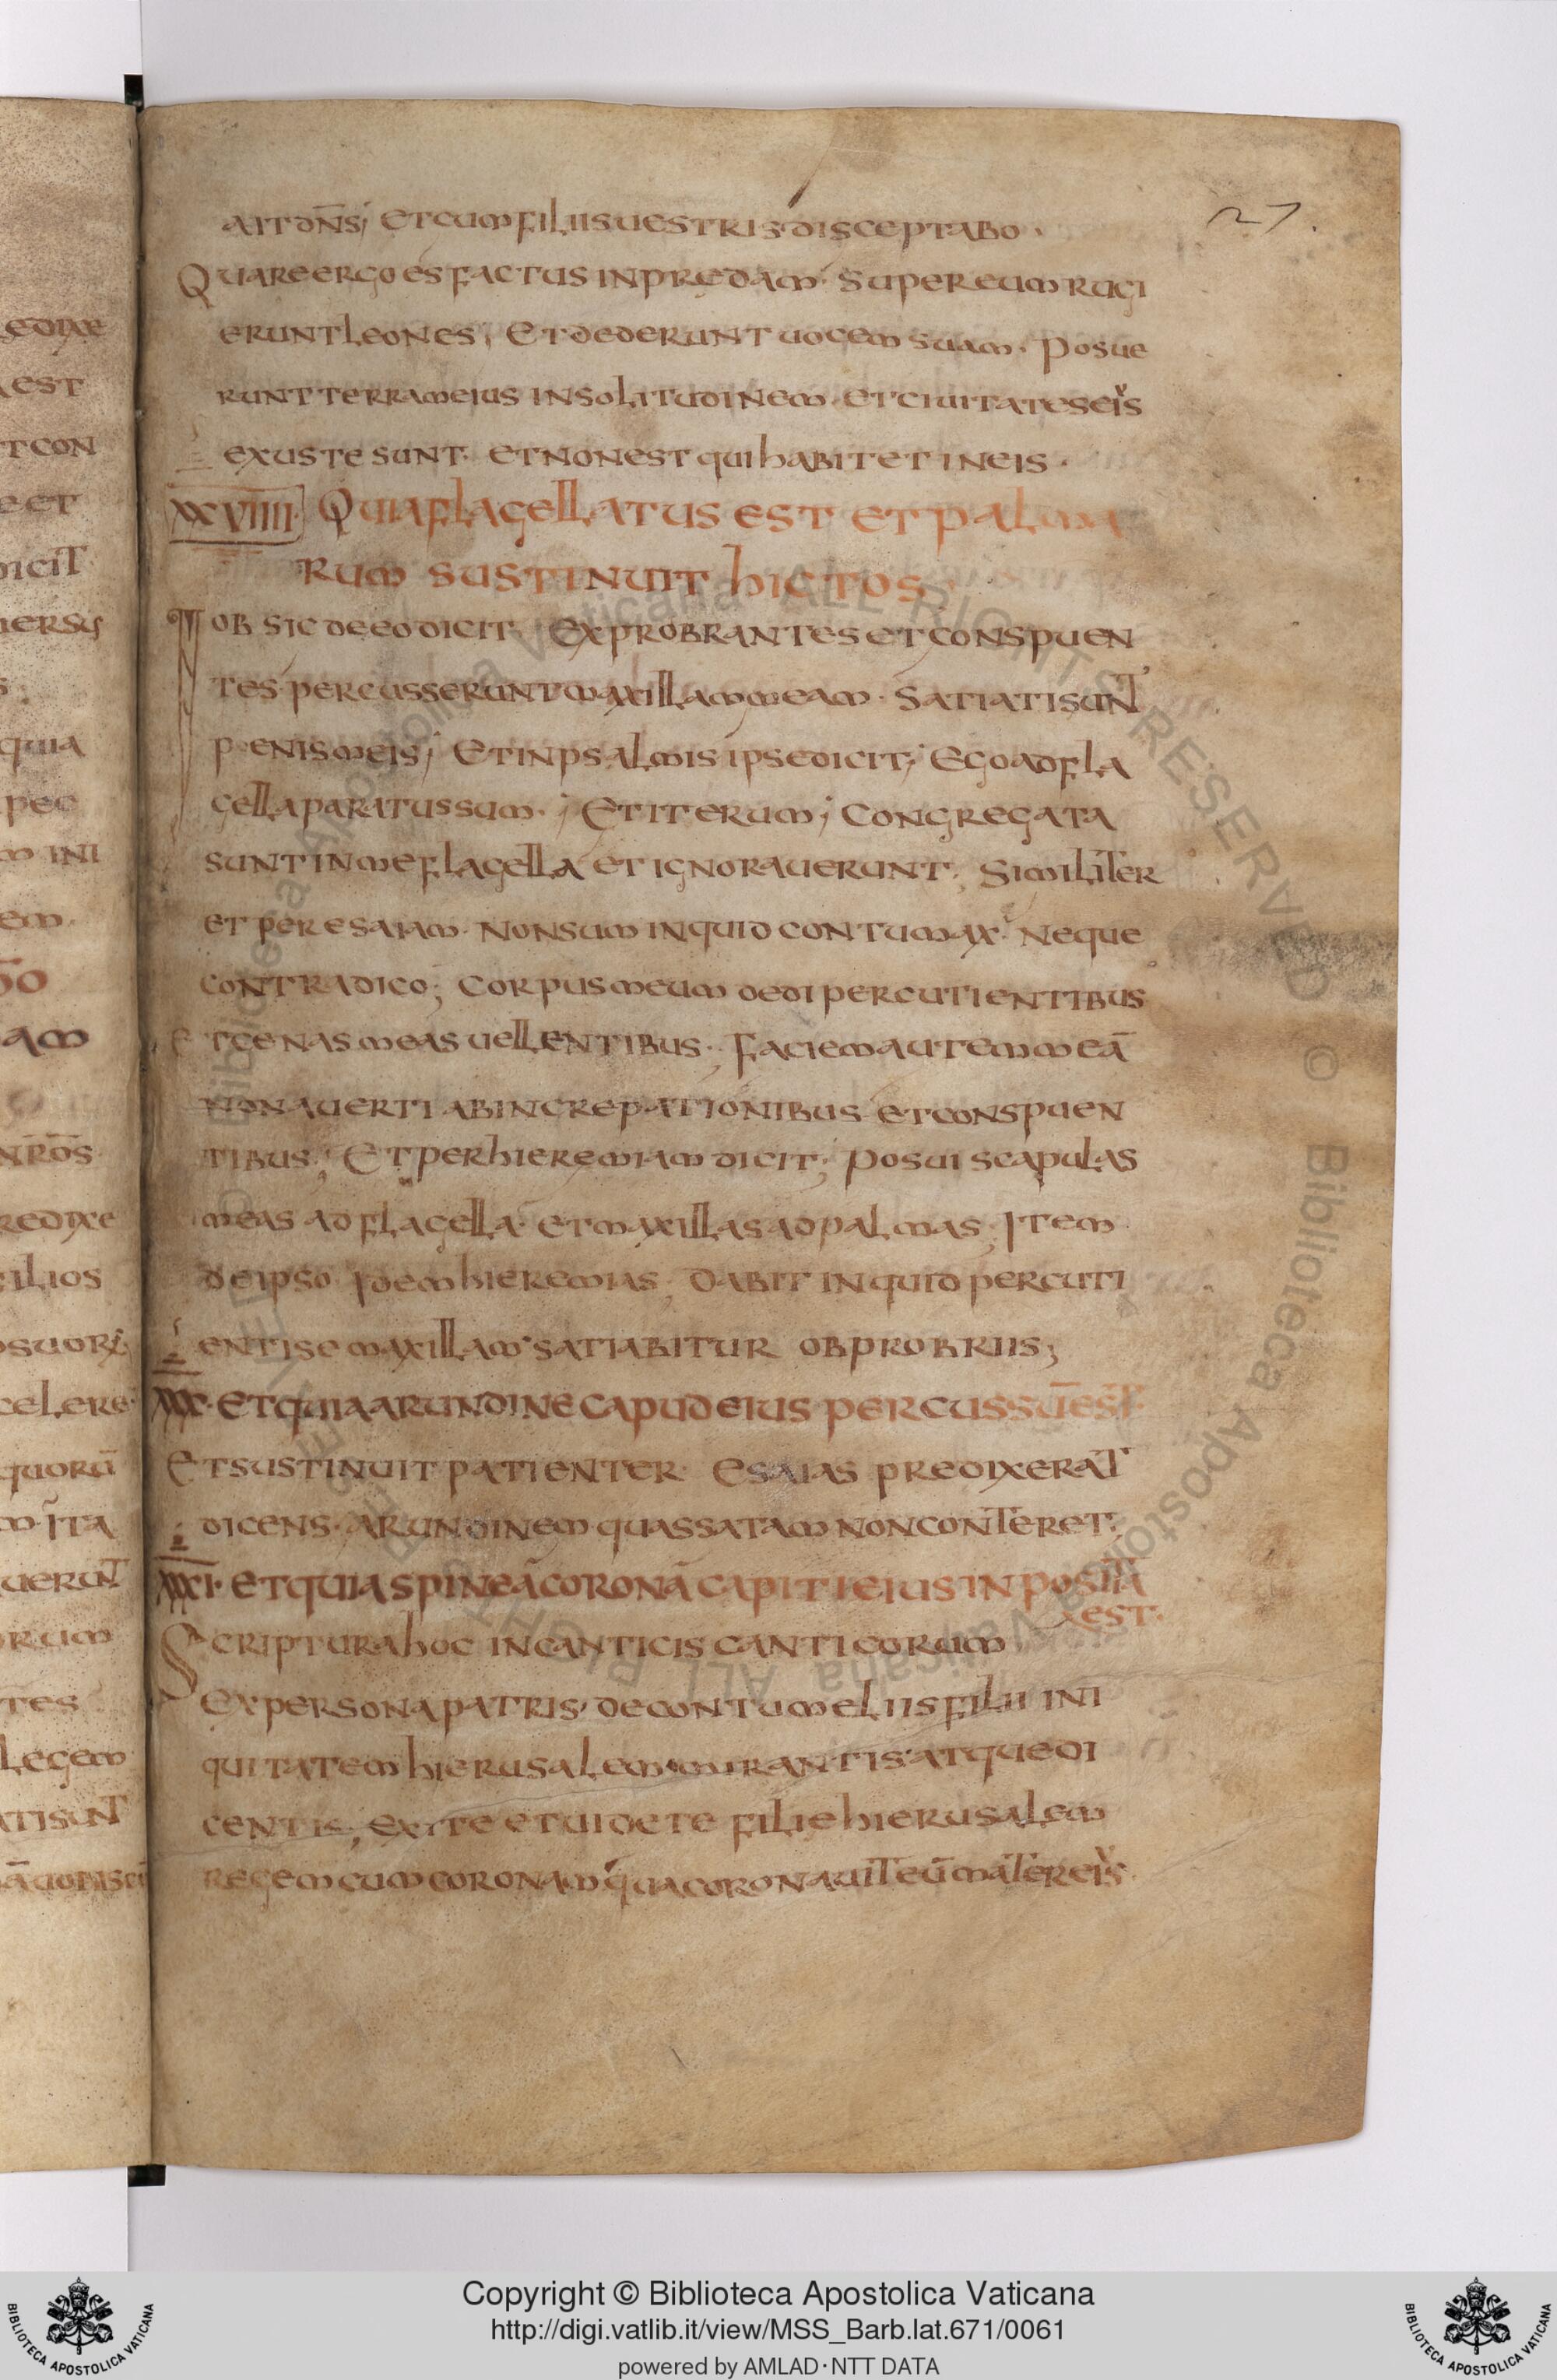 27.
AITDN̄S; ETCUMFILIISUESTRISDISCEPTABO.
QUAREERGOESFACTUSINPREDAM. SUPEREUMRUGI
ERUNTLEONES; ETDEDERUNTUOCEMSUAM. POSUE
RUNTTERRAMEIUS INSOLITUDINEM. ETCIUITATESEIS
EXUSTESUNT. ETNONESTQUIHABITET INEIS.
XXVIIII. QUIAFLAGELLATUS EST ET PALMA
RUM SUSTINUIT HICTOS.
IOB SIC DEEODICIT. EXPROBRANTES ETCONSPUEN
TES PERCUSSERUNTMAXILLAMMEAM. SATIATISUNT
POENISMEIS; ETINPSALMIS IPSEDICIT; EGOADFLA
GELLAPARATUSSUM. ; ETITERUM; CONGREGATA
SUNTINMEFLAGELLA ETIGNORAUERUNT; SIMILITER
ET PERESAIAM. NONSUM INQUID CONTUMAX. NEQUE
CONTRADICO; CORPUSMEUM DEDIPERCUTIENTIBUS
ETGENASMEASUELLENTIBUS. FACIEMAUTEMMEĀ
NONAUERTI ABINCREPATIONIBUS ETCONSPUEN
TIBUS; ETPERHIEREMIAM DICIT; POSUI SCAPULAS
MEAS ADFLAGELLA. ETMAXILLASADPALMAS; ITEM
DEIPSO IDEMHIEREMIAS; DABIT INQUID PERCUTI
ENTISEMAXILLAM SATIABITUR OBPROBRIIS;
XXX. ETQUIAARUNDINECAPUDEIUS PERCUSSŪEST.
ETSUSTINUIT PATIENTER. ESAIAS PREDIXERAT
DICENS. ARUNDINEM QUASSATAM NONCONTERET.
XXXI. ETQUIASPINEĀCORONĀCAPITIEIUSINPOSITĀ
EST.
SCRIPTURAHOC INCANTICIS CANTICORUM
EXPERSONAPATRIS, DECONTUMELIISFILII INI
QUITATEMHIERUSALEM MIRANTIS. ATQUEDI
CENTIS; EXITE ETUIDETE FILIEHIERUSALEM
REGEMCUMCORONAMQUACORONAUITEŪMATEREIS.
EDIXE
EST
TCON
EET
DICIT
UERSUS
QUIA
PEC
M INI
EM.
AM
NR̄ŌS
REDIXE
FILIOS
CELERE
QUORŪ
ITA
UERUNT
ORUM
TES
LEGEM
ATISUNT
Copyright © Biblioteca Apostolica Vaticana
http://digi.vatlib.it/view/MSS_Barb.lat.671/0061
powered by AMLAD·NTT DATA
BIBLIOTECA APOSTOLICA VATICANA
BIBLIOTECA APOSTOLICA VATICANA